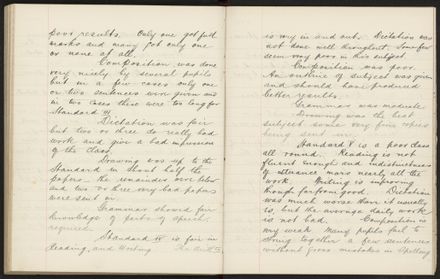 poor results. Only one got full
marks and many got only one
or none at all.
Composition was done
very nicely by several pupils
but in a few cases only one
or two sentences were given and
in two cases these were too long for
Standard III
Dictation was fair
but two or three do really bad
work and give a bad impression
of the class.
Drawing was up to the
Standard in about half the
papers the remainder were below
and two or three very bad papers
were sent in.
Grammar should fair
knowledge of parts of speech
required
Standard IV is fair in
Reading, and Writing
is very in and out. Dictation was
not done well throughout. Some few
seem very poor in this subject.
Composition was poor.
An outline of subject was given
and should have produced
better results.
Grammar was moderate
Drawing was the best
subject some very fine copies
being sent in.
Standard V is a poor class
all round. Reading is not
fluent enough and indistinctness
of utterance mars nearly all the
work. Writing is improving
though far from good. Dictation
was much worse than it usually
is, but the average daily work
is not bad. Composition is
very weak Many pupils fail to
string together a few sentences
without gross mistakes in Spelling